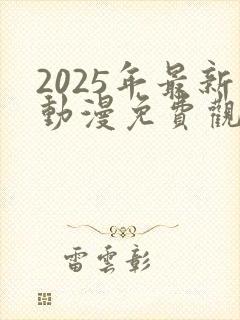 2025年最新
動漫免費觀
雷雲彰